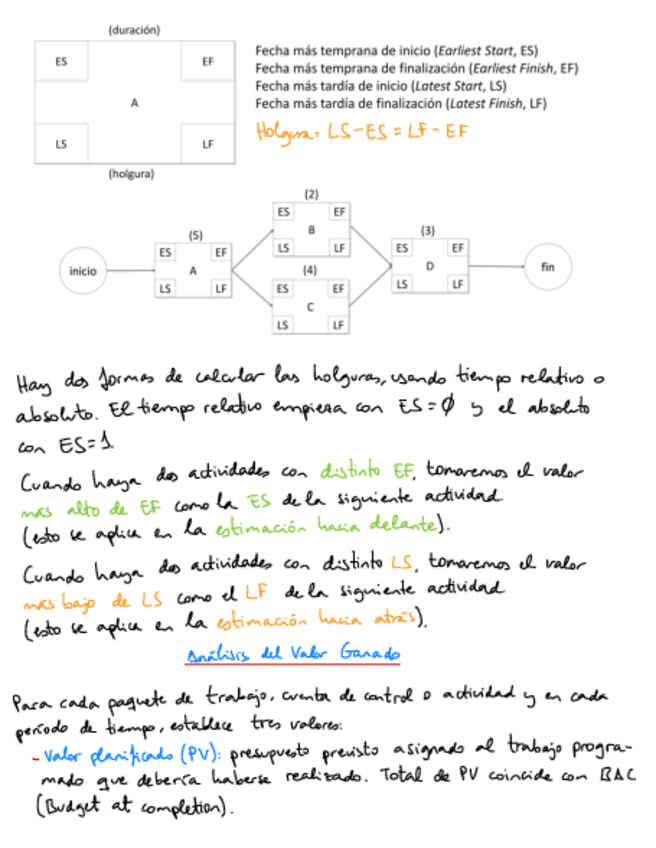 (duración)
ES EF
A
LS LF
(holgura)
Fecha más temprana de inicio (Earliest Start, ES)
Fecha más temprana de finalización (Earliest Finish, EF)
Fecha más tardía de inicio (Latest Start, LS)
Fecha más tardía de finalización (Latest Finish, LF)
Holgura = LS-ES = LF - EF
inicio
(5)
ES EF
A
LS LF
(2)
ES EF
B
LS LF
(4)
ES EF
C
LS LF
(3)
ES EF
D
LS LF
fin
Hay dos formas de calcular las holguras, usando tiempo relativo o
absoluto. El tiempo relativo empieza con ES=0 y el absoluto
con ES=1
Cuando haya dos actividades con distinto EF, tomaremos el valor
más alto de EF como la ES de la siguiente actividad
(esto se aplica en la estimación hacia delante).
Cuando haya dos actividades con distinto LS, tomaremos el valor
más bajo de LS como el LF de la siguiente actividad
(esto se aplica en la estimación hacia atrás).
Análisis del Valor Ganado
Para cada paquete de trabajo, cuenta de control o actividad y en cada
período de tiempo, establece tres valores:
- Valor planificado (PV): presupuesto previsto asignado al trabajo progra-
mado que debería haberse realizado. Total de PV coincide con BAC
(Budget at completion).